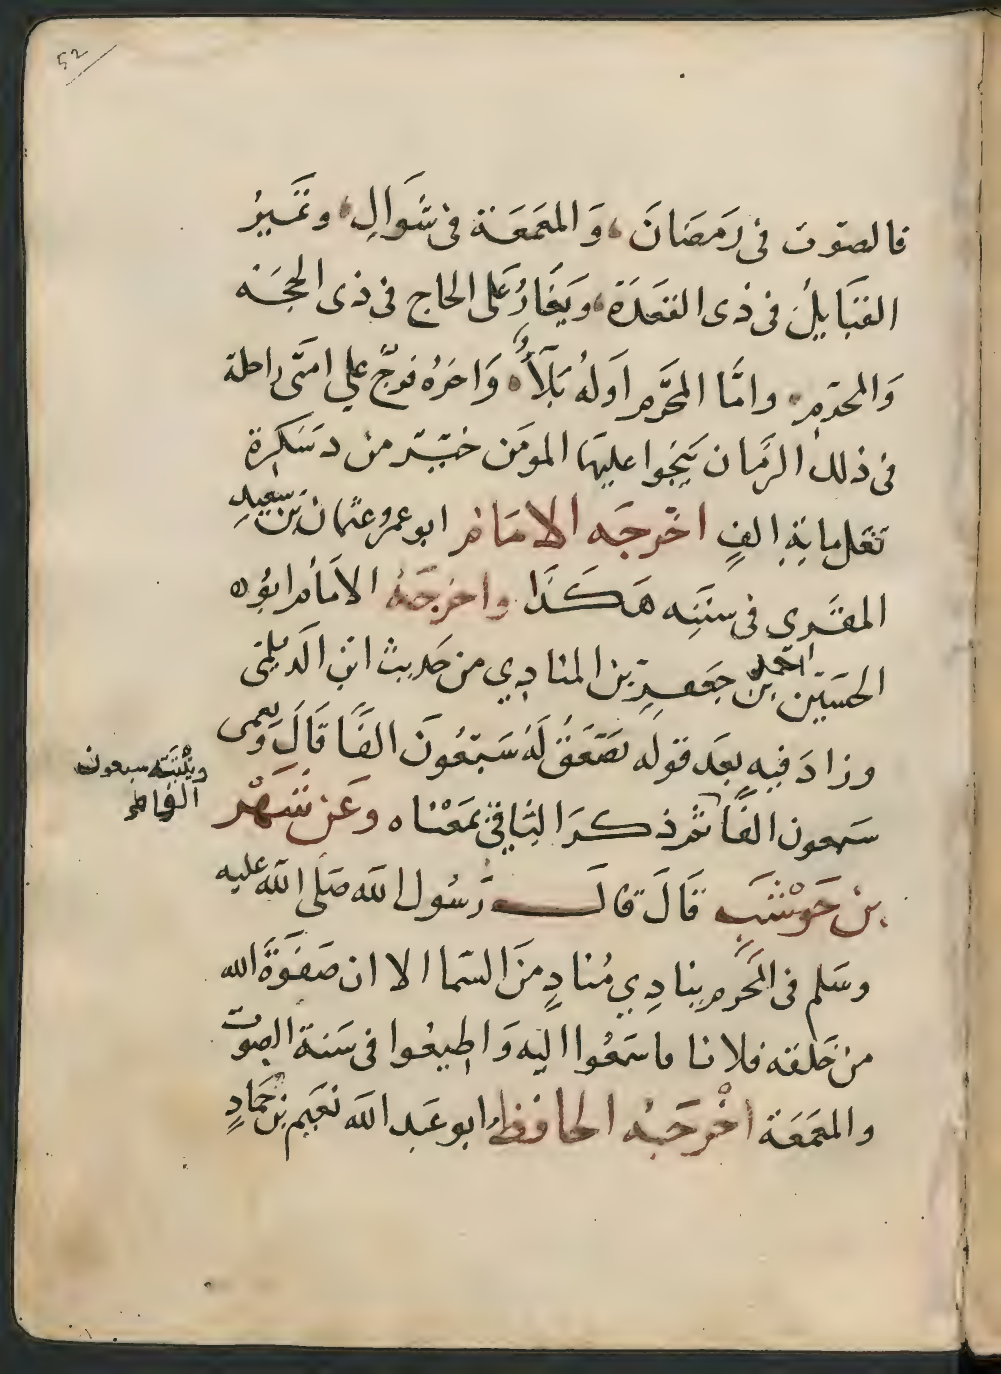 52
فالصوت في رمضان، والمعمعة في شوال، وتميز
القبايل في ذي القعدة، ويغار على الحاج في ذي الحجه
والمحرم، واما المحرم اوله بلاء، واخره فرج علي امتي راحلة
في ذلك الزمان ينجوا عليها المومن خير من دسكرة
تغل ماية الف اخرجه الامام ابو عمرو عثمان بن سعيد
المقري في سننه هكذا واخرجه الامام ابو
الحسين احمد بن جعفر بن المنادي من حديث ابن الديلمي
وزاد فيه بعد قوله يصعق له سبعون الفا قال ويعمى
سبعون الفا ثم ذكر الباقي بمعناه وعن شهر
بن حوشب قال قال رسول الله صلى الله عليه
وسلم في المحرم ينادي مناد من السما الا ان صفوة الله
من خلقه فلانا فاسمعوا اليه واطيعوا في سنة الصوت
والمعمعة اخرجه الحافظ ابو عبد الله نعيم بن حماد
سبعون